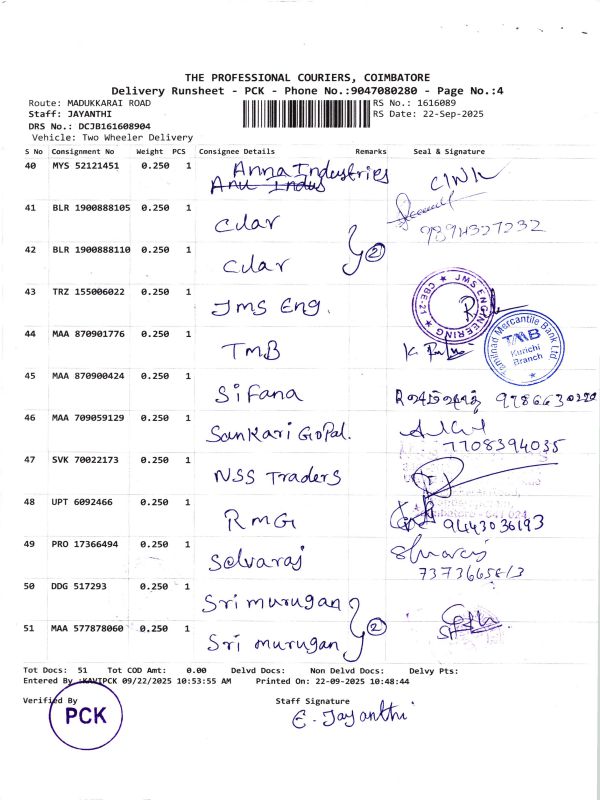 THE PROFESSIONAL COURIERS, COIMBATORE
Delivery Runsheet - PCK - Phone No.:9047080280 - Page No.:4
Route: MADUKKARAI ROAD RS No.: 1616089
Staff: JAYANTHI RS Date: 22-Sep-2025
DRS No.: DCJB161608904
Vehicle: Two Wheeler Delivery
S No Consignment No Weight PCS Consignee Details Remarks Seal & Signature
40 MYS 52121451 0.250 1 Anna Industries
41 BLR 1900888105 0.250 1 Cdar
9894327232
42 BLR 1900888110 0.250 1 Cdar 2
43 TRZ 155006022 0.250 1 Jms Eng. JMS ENGINEERING CBE-21
44 MAA 870901776 0.250 1 TMB Tamilnad Mercantile Bank Ltd. TMB Kurichi Branch
45 MAA 870900424 0.250 1 Sifana
46 MAA 709059129 0.250 1 Sankari Gopal.
7708394035
47 SVK 70022173 0.250 1 NSS Traders
48 UPT 6092466 0.250 1 RMG 9443036193
49 PRO 17366494 0.250 1 Selvaraj
50 DDG 517293 0.250 1 Sri murugan
51 MAA 577878060 0.250 1 Sri murugan 2
Tot Docs: 51 Tot COD Amt: 0.00 Delvd Docs: Non Delvd Docs: Delvy Pts:
Entered By :KAVIPCK 09/22/2025 10:53:55 AM Printed On: 22-09-2025 10:48:44
Verified By Staff Signature
PCK E. Jayanthi